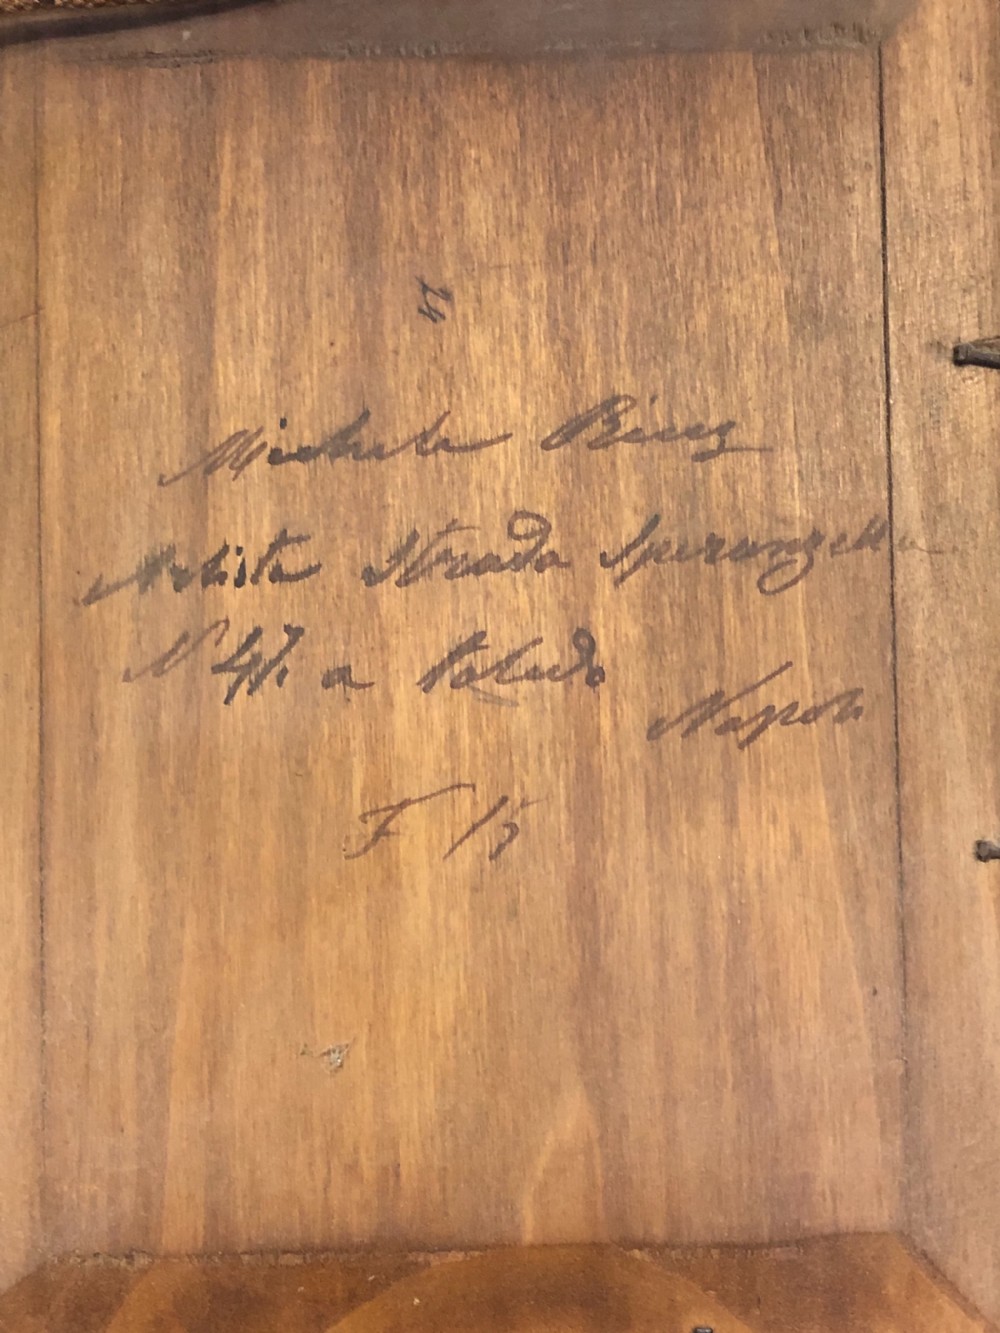 24
Michele
Artista Strada Speranzella
N 47. a Toledo
Napoli
F 15